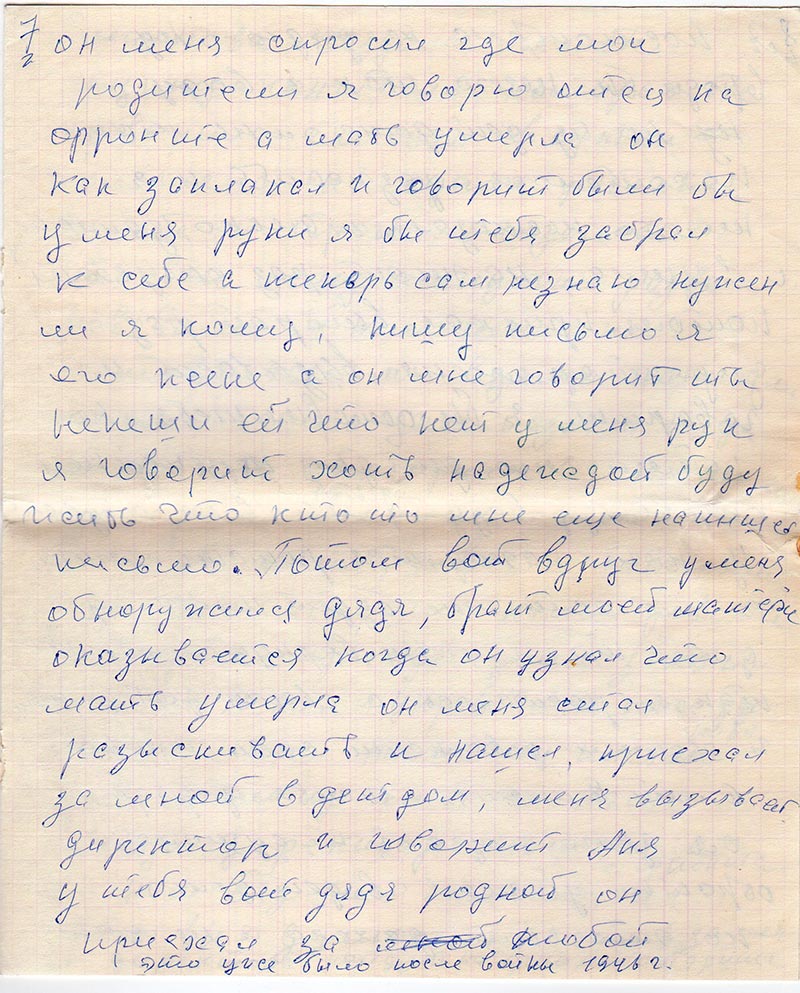 7
он меня спросил где мои
родители я говорю отец на
фронте а мать умерла он
как заплакал и говорит были бы
у меня руки я бы тебя забрал
к себе а теперь сам незнаю нужен
ли я кому, пишу письмо я
его жене а он мне говорит ты
непеши ей что нет у меня рук
я говорит хоть надеждой буду
жить что кто то мне еще напишет
письмо. Потом вот вдруг у меня
обноружился дядя, брат моей матери
оказывается когда он узнал что
мать умерла он меня стал
разыскивать и нашел, приехал
за мной в детдом, меня вызывает
директор и говорит Аня
у тебя вот дядя родной он
приехал за тобой
это уже было после войны 1946 г.